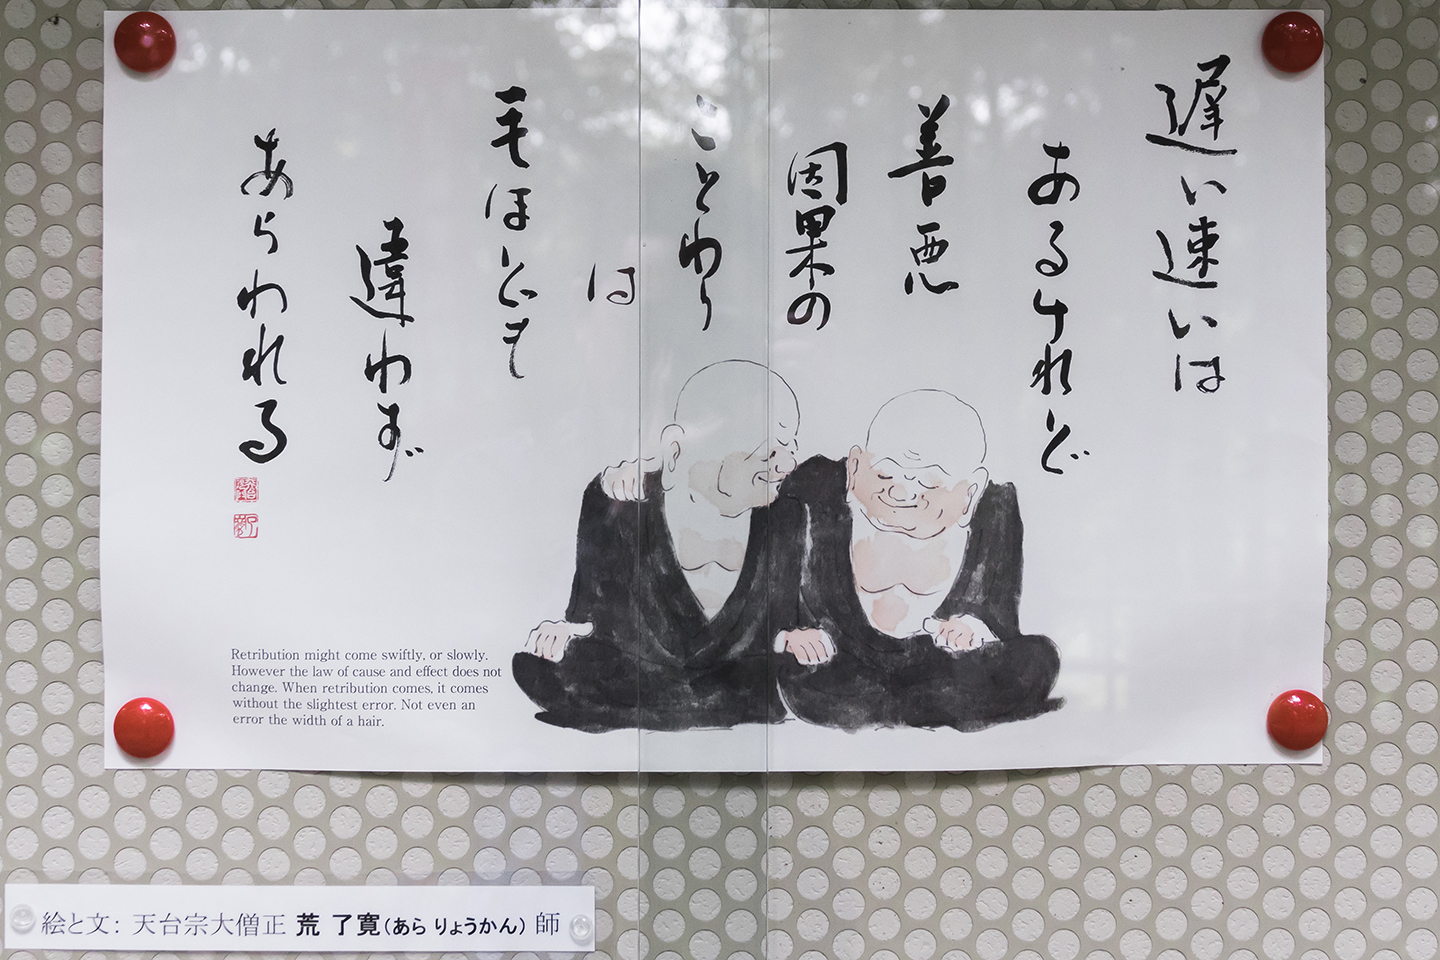 遅い速いは
あるけれど
善悪
因果の
ことわり
は
毛ほども
違わず
あらわれる
Retribution might come swiftly, or slowly.
However the law of cause and effect does not
change. When retribution comes, it comes
without the slightest error. Not even an
error the width of a hair.
絵と文: 天台宗大僧正 荒 了寛(あら りょうかん) 師